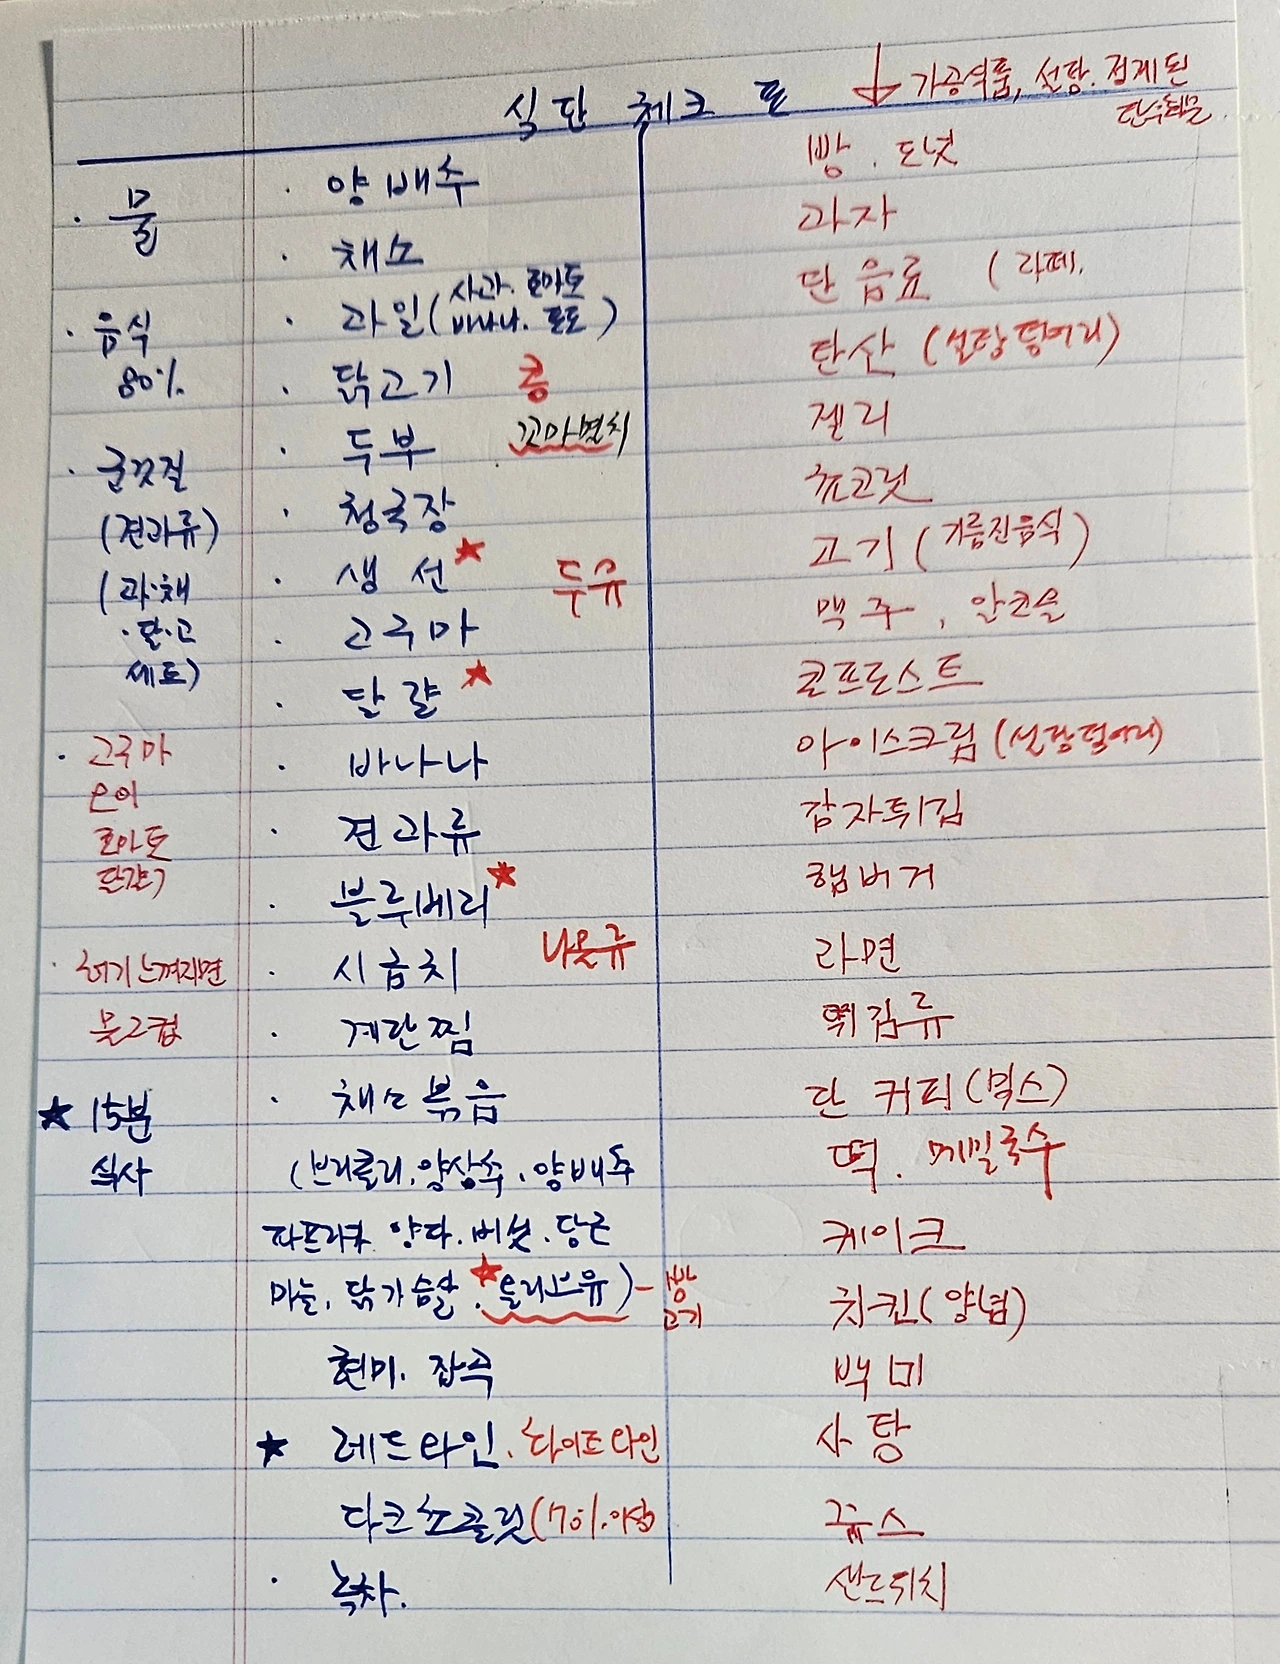 식단 체크 표
↓ 가공식품, 설탕. 정제된
탄수화물
· 물
· 음식
80%
· 군것질
(견과류)
(과·채
·달·고
세트)
· 고구마
오이
토마토
단감
· 허기느껴지면
물2컵
★ 15분
식사
· 양배추
· 채소
· 과일(사과. 토마토
바나나. 포도)
· 닭고기 콩
· 두부 꼬마멸치
· 청국장
· 생선★ 두유
· 고구마
· 달걀★
· 바나나
· 견과류
· 블루베리★
· 시금치 나물류
· 계란찜
· 채소볶음
(브러콜리.양상추.양배추
파프리카 양파.버섯.당근
마늘. 닭가슴살.★올리브유)-
고기
현미. 잡곡
★ 레드와인. 화이트와인
다크쵸콜릿(70%이상
· 녹차.
빵. 도넛
과자
단음료 (라떼.
탄산 (설탕덩어리)
젤리
쵸코릿
고기(기름진음식)
맥주, 안코올
콘프로스트
아이스크림(설탕덩어리)
감자튀김
햄버거
라면
튀김류
단 커피(믹스)
떡. 메밀국수
케이크
치킨(양념)
백미
사탕
쥬스
샌드위치